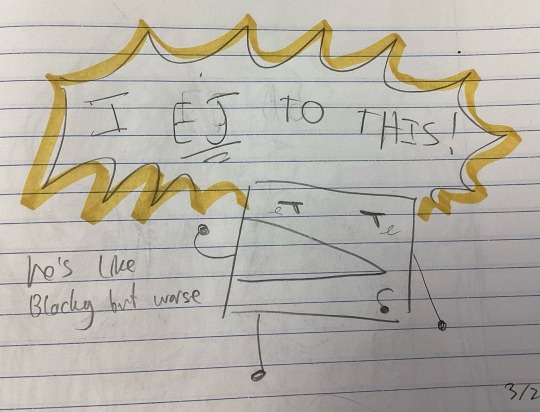 I EJ TO THIS!
he's like
Blocky but worse
3/2